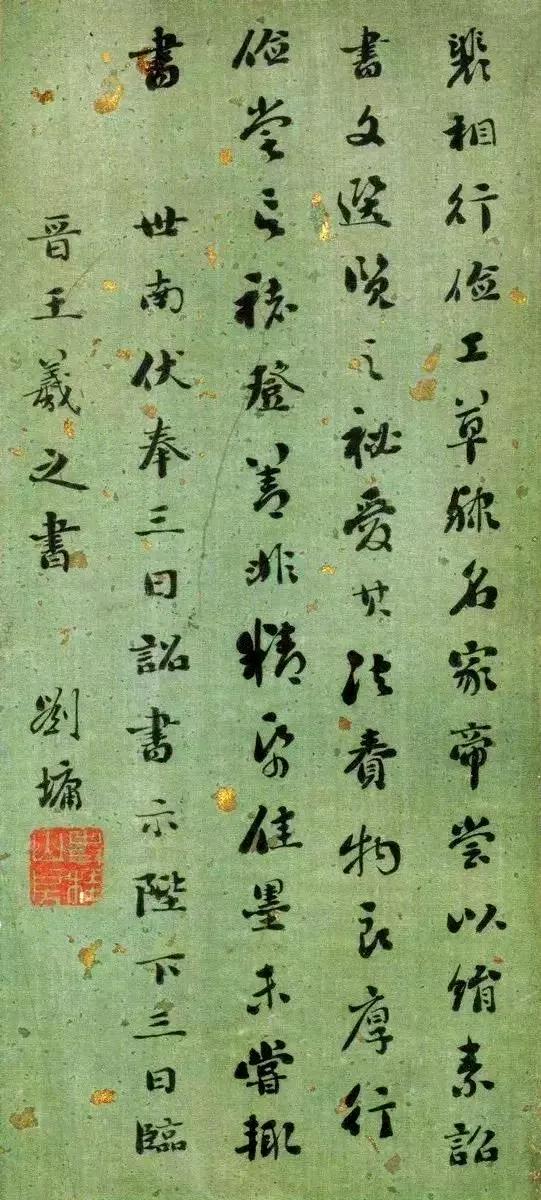 裴相行儉工草隸名家帝嘗以絹素詔
書文選覽之祕愛其法賚物良厚行
儉嘗言褚登善非精紙佳墨未嘗輒
書 世南伏奉三日詔書示陛下三日臨
晋王羲之書 劉墉